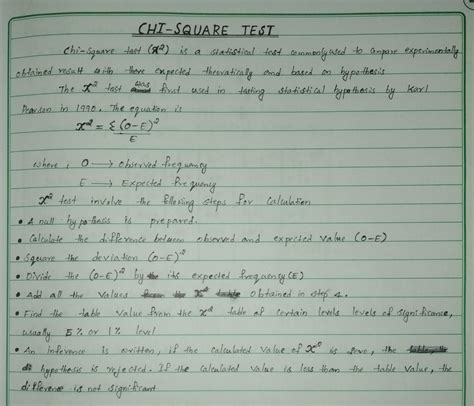 CHI-SQUARE TEST
Chi-Square test (x²) is a statistical test commonly used to compare experimentally
obtained result with those expected theoratically and based on hypothesis
The x² test was first used in testing statistical hypothesis by Karl
Pearson in 1990. The equation is
x² = Σ (O-E)²
E
where, O → Observed frequency
E → Expected frequency
x² test involve the following steps for calculation
• A null hypothesis is prepared.
• Calculate the difference between observed and expected value (O-E)
• Square the deviation (O-E)²
• Divide the (O-E)² by its expected frequency (E)
• Add all the values obtained in step 4.
• Find the table value from the x² table of certain levels levels of significance,
usually 5% or 1% level
• An inference is written, if the calculated value of x² is , the
hypothesis is rejected. If the calculated value is less than the table value, the
difference is not significant